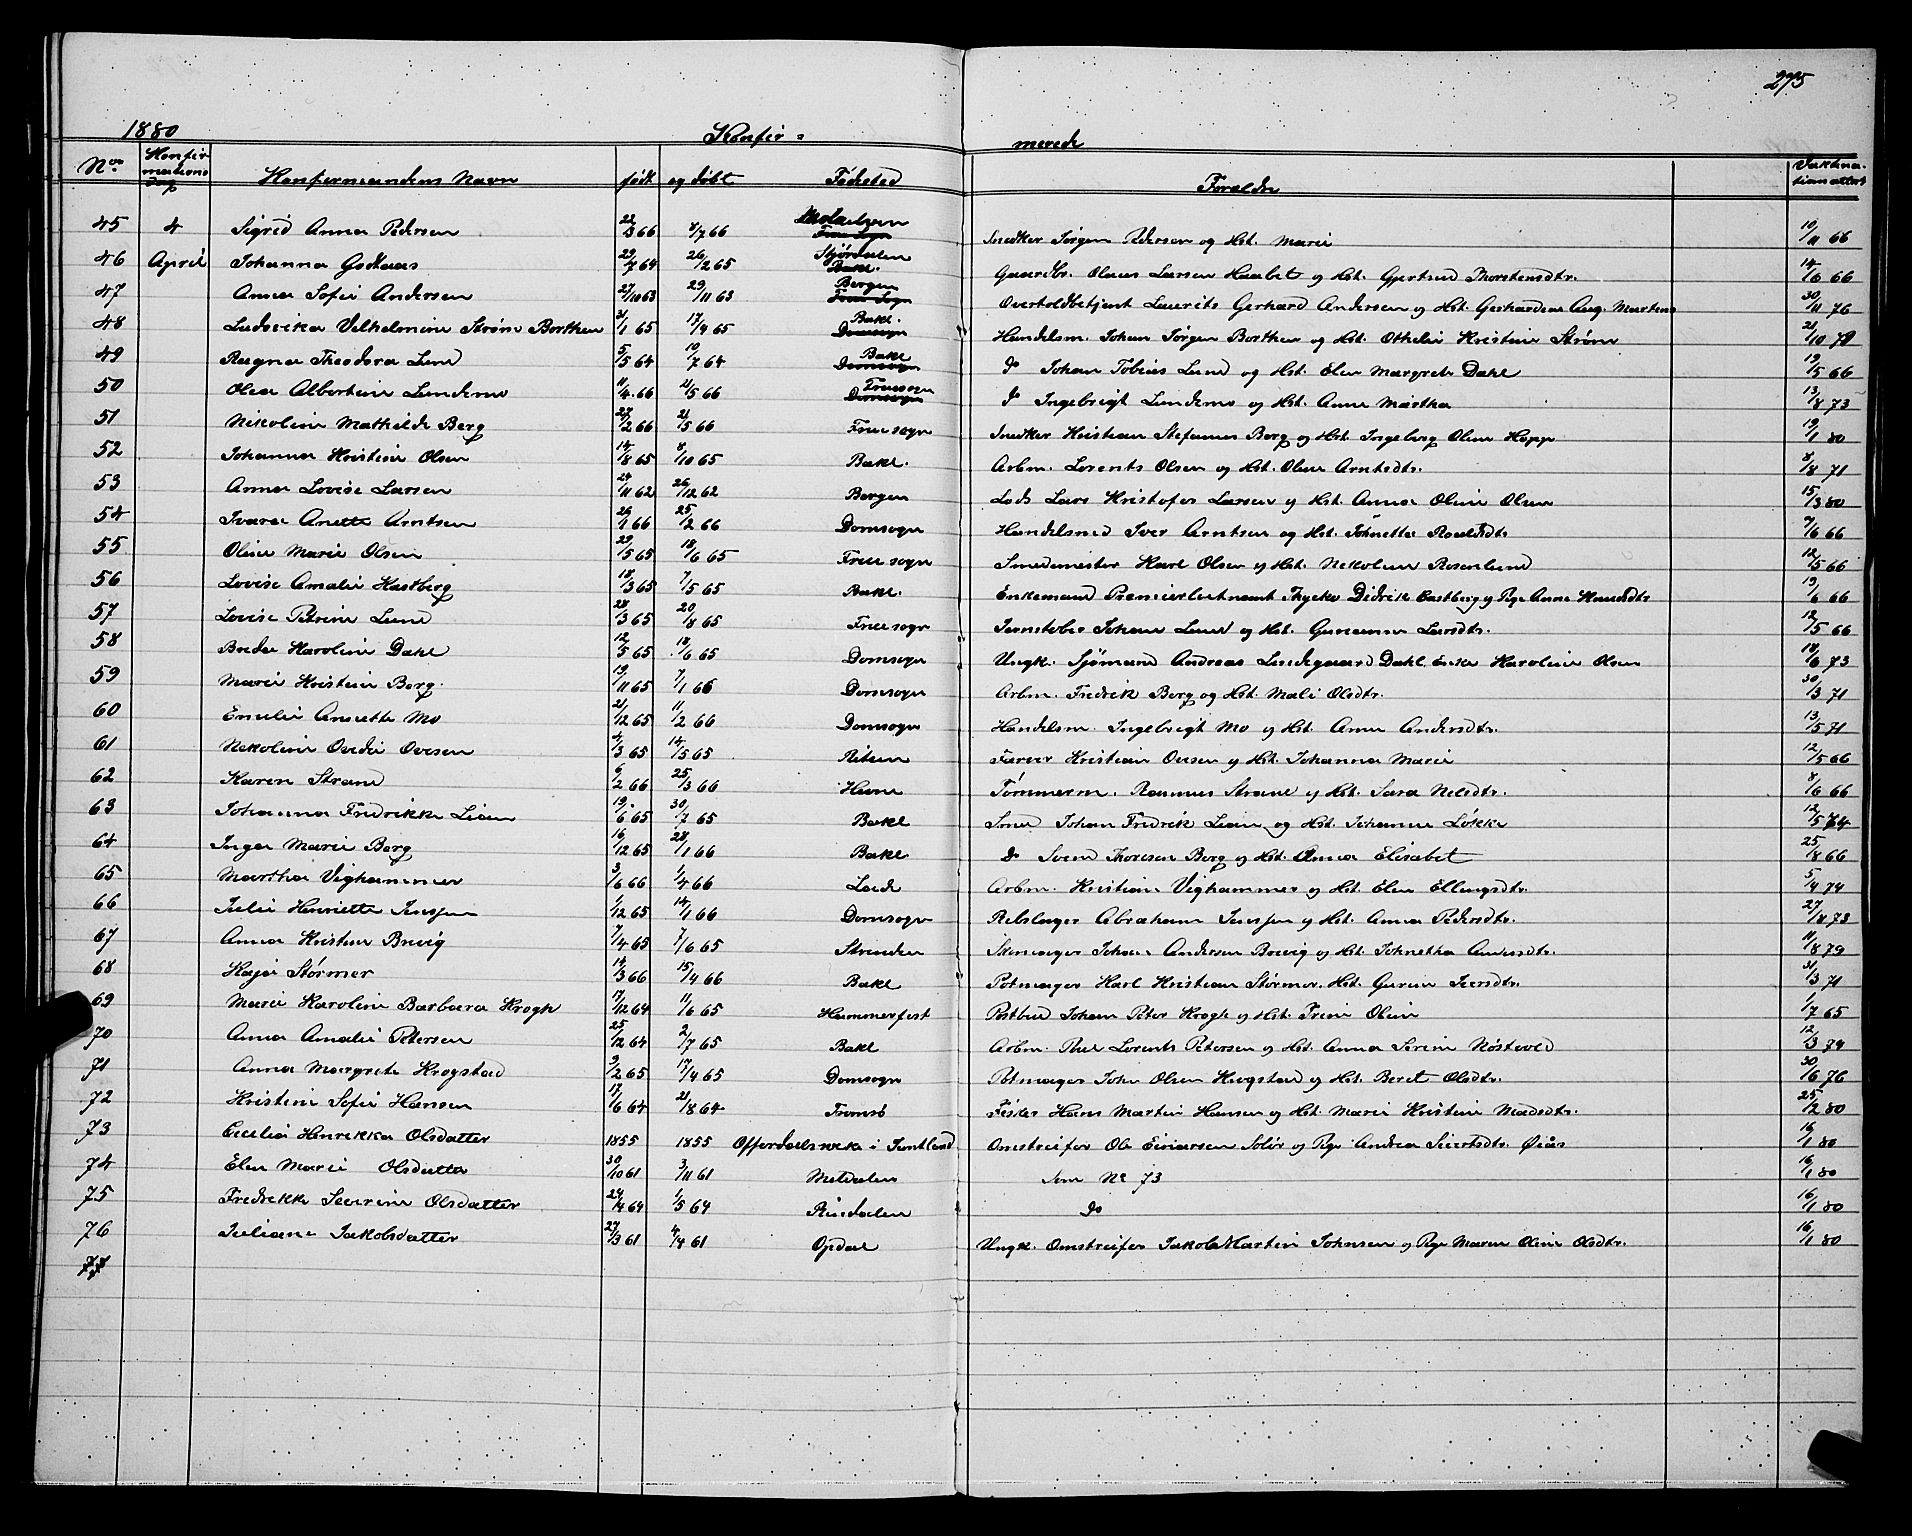 275
1880 Konfir= merede
No Konfirmations dag Konfirmandens Navn født og døbt Fødested Forældre Vaktinationsattest
45 4 Sigrid Anna Pedersen 22/3 66 8/7 66 Frue Sogn Snedker Jørgen Pedersen og Hst. Marie 10/11 66
46 April Johanna Godtaas 29/7 64 26/2 65 Stjørdalen Bakl. Gaardbr. Olaus Larsen Haabet og Hst. Gjertrud Thorstensdtr. 14/6 66
47 Anna Sofie Andersen 27/10 63 29/11 63 Bergen Frue Sogn Overtoldbetjent Lauritz Gerhard Andersen og Hst. Gerhardine Aug. Martens 30/11 76
48 Ludovika Vilhelmine Strøm Borthen 31/1 65 17/4 65 Bakl. Domsogn Handelsm. Johan Jørgen Borthen og Hst. Othelie Kristine Strøm 21/10 78
49 Ragna Theodora Lund 5/5 64 10/7 64 Bakl Domsogn do Johan Tobias Lund og Hst. Elen Margrete Dahl 19/5 66
50 Olea Albertine Lundemo 11/4 66 21/5 66 Fruesogn Domsogn do Ingebrigt Lundemo og Hst. Anne Martha 13/8 73
51 Nikoline Mathilde Berg 27/2 66 21/5 66 Frue sogn Snedker Kristian Stefanus Berg og Hst. Ingeborg Oline Hopp 19/1 80
52 Johanna Kristine Olsen 14/8 65 8/10 65 Bakl. Arbm. Lorents Olsen og Hst. Oline Arntsdtr. 8/8 71
53 Anna Lovise Larsen 24/11 62 26/12 62 Bergen Lods Lars Kristofer Larsen og Hst. Anna Oline Olsen 15/3 80
54 Ivara Anette Arntsen 26/1 66 25/2 66 Domsogn Handelsmd Iver Arntsen og Hst. Johnetta Roaldsdtr 9/6 66
55 Oline Marie Olsen 29/5 65 18/6 65 Frue sogn Smedmester Karl Olsen og Hst. Nikoline Rosenlund 12/5 66
56 Lovise Amalie Kastberg 18/3 65 7/5 65 Bakl. Enkemand Premierlieutnant Thycho Didrik Castberg og Pge Anne Knudsdtr 19/6 66
57 Lovise Petrine Lund 28/3 65 20/8 65 Frue sogn Jernstøber Johan Lund og Hst. Gunanna Larsdtr. 12/5 66
58 Breda Karoline Dahl 12/5 65 18/6 65 Domsogn Ungk. Sjømand Andreas Lundegaard Dahl Enke Karoline Olsen 18/6 73
59 Marie Kristine Berg. 19/11 65 7/1 66 Domsogn Arbm. Fredrik Berg og Hst. Mali Olsdtr. 30/3 71
60 Emilie Ansette Mo 21/12 65 11/2 66 Domsogn Handelsm. Ingebrigt Mo og Hst. Anne Andersdtr. 13/5 71
61 Nikoline Ovedie Ovesen 4/3 65 14/5 65 Ritsen Farver Kristian Ovesen og Hst. Johanna Marie 12/5 66
62 Karen Strand 6/2 66 25/3 66 Hevne Tømmerm. Rasmus Strand og Hst. Sara Nilsdtr. 8/6 66
63 Johanna Fredrikke Lian 19/6 65 30/7 65 Bakl Smed Johan Fredrik Lian og Hst. Johanna Løkke 12/5 74
64 Inga Marie Berg 16/12 65 28/1 66 Bakl do Svend Thoresen Berg og Hst. Anna Elisabet 25/8 66
65 Martha Vighammer 3/6 66 1/4 66 Lade Arbm. Kristian Vighammer og Hst. Elen Ellingsdtr. 5/4 74
66 Julie Henriette Jensen 1/12 65 14/1 66 Domsogn Rebslager Abraham Jensen og Hst. Anna Pedersdtr. 27/11 73
67 Anna Kristine Brevig 7/4 65 7/6 65 Strinden Skomager Johan Andersen Brevig og Hst. Johnetha Amundsdtr. 11/8 79
68 Kaja Størmer 14/3 66 15/4 66 Bakl Potmager Karl Kristian Størmer. Hst. Gurine Iversdtr. 31/3 71
69 Marie Karoline Barbara Krogh 17/12 64 11/6 65 Hammerfest Postbud Johan Peter Krogh og Hst. Trine Oline 1/7 65
70 Anna Amalie Petersen 25/12 64 2/7 65 Bakl Arbm. Peter Lorents Petersen og Hst. Anna Serine Nøstvold 12/3 74
71 Anna Margrete Krogstad 9/2 65 17/4 65 Domsogn Potmager John Olsen Krogstad og Hst. Beret Olsdtr. 30/6 76
72 Kristine Sofie Hansen 17/6 64 21/8 64 Tromsø Fisker Hans Martin Hansen og Hst. Marie Kristine Madsdtr. 25/2 80
73 Cecilia Henrikka Olsdatter 1855 1855 Offerdalsvæk i Jemtland Omstreifer Ole Einarsen Solør og Pge Andrea Sivertsdtr. Øiås 16/1 80
74 Elen Marie Olsdatter 30/10 61 3/11 61 Meldalen Som No 73 16/1 80
75 Fredrikke Severine Olsdatter 24/4 64 1/5 64 Rindalen do 16/1 80
76 Juliane Jakobsdatter 27/3 61 4/4 61 Opdal Ungk. Omstreifer Jakob Martin Johnsen og Pge Maren Oline Olsdtr. 16/1 80
77